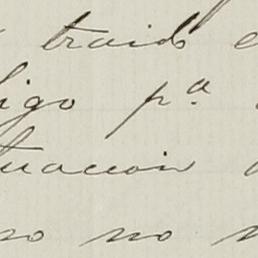 traido
igo pª
tuacion
no no